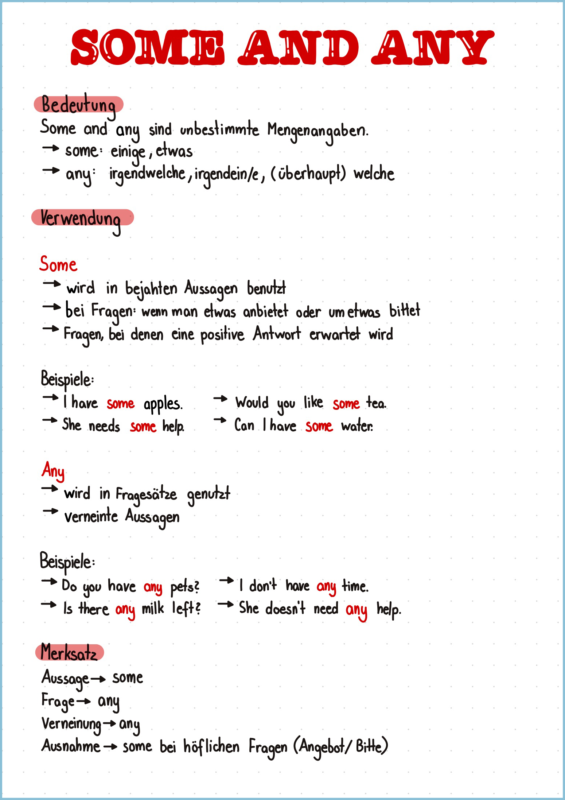 SOME AND ANY
Bedeutung
Some and any sind unbestimmte Mengenangaben.
→ some: einige, etwas
→ any: irgendwelche, irgendein/e, (überhaupt) welche
Verwendung
Some
→ wird in bejahten Aussagen benutzt
→ bei Fragen: wenn man etwas anbietet oder um etwas bittet
→ Fragen, bei denen eine positive Antwort erwartet wird
Beispiele:
→ I have some apples. → Would you like some tea.
→ She needs some help. → Can I have some water.
Any
→ wird in Fragesätze genutzt
→ verneinte Aussagen
Beispiele:
→ Do you have any pets? → I don't have any time.
→ Is there any milk left? → She doesn't need any help.
Merksatz
Aussage → some
Frage → any
Verneinung → any
Ausnahme → some bei höflichen Fragen (Angebot/Bitte)